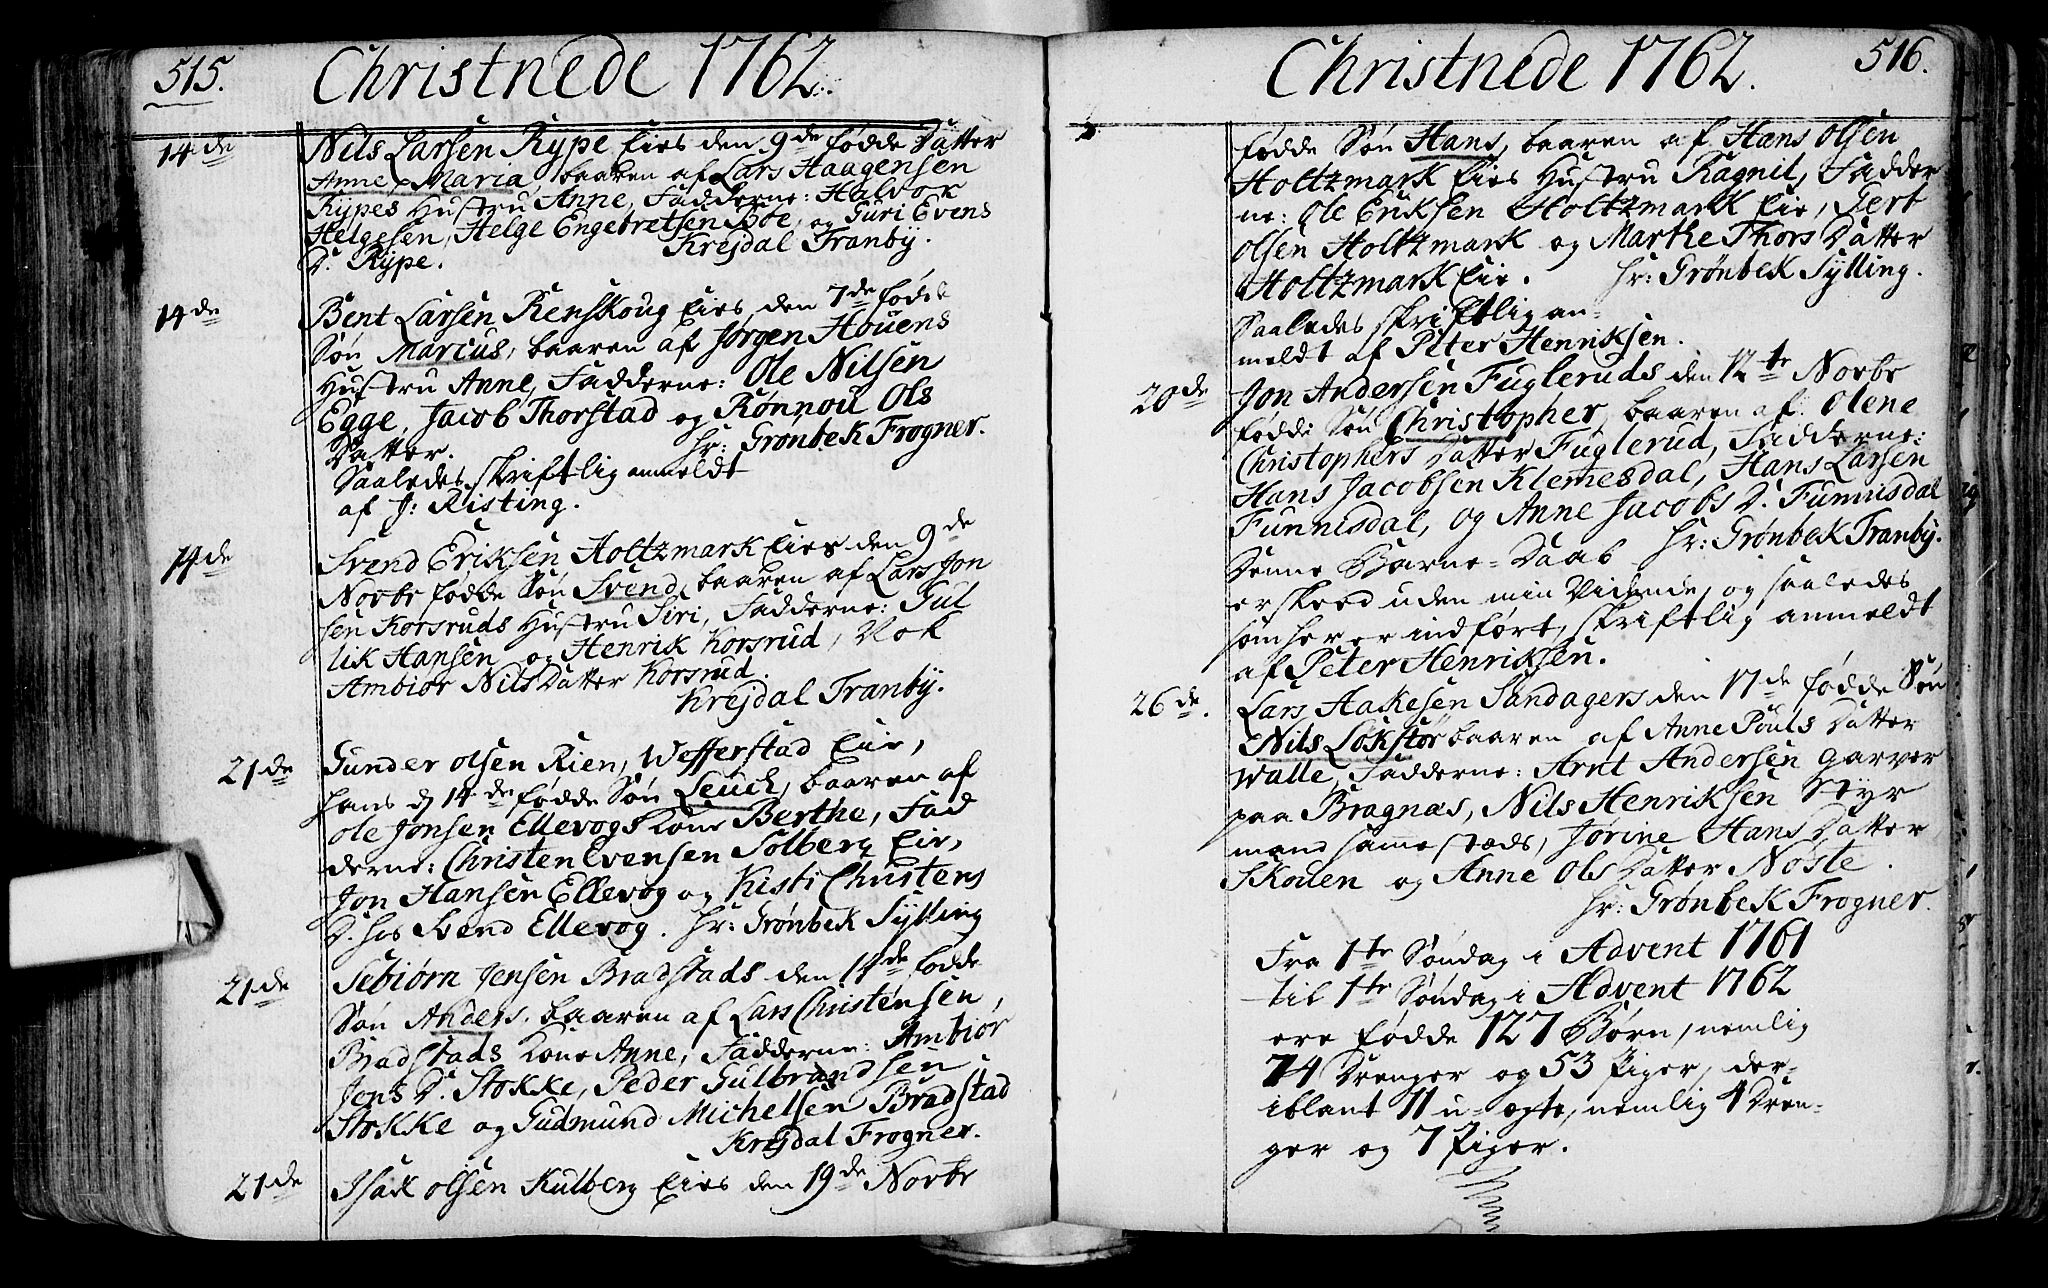 515. Christnede 1762.
14de Nils Larsen Rype Eies den 9de fødde Datter
Anne Maria, baaren af Lars Haagensen
Rypes Hustru Anne, Fadderne: Halvor
Helgesen, Helge Engebretsen Boe, og Guri Evens
D. Rype. Krejdal Tranby.
14de Bent Larsen Renskoug Eies den 7de fødde
Søn Marcus, baaren af Jørgen Houens
Hustru Anne, Fadderne: Ole Nilsen
Egge, Jacob Thorstad og Rønnou Ols
Datter. Hr: Grønbek Frogner.
Saaledes skriftlig anmeldt
af J: Risting.
14de Svend Eriksen Holtzmark Eies den 9de
Novbr fødde Søn Svend, baaren af Lars Jon
sen Korsruds Hustru Siri, Fadderne: Gul
lik Hansen og Henrik Korsrud, Nok
Ambior Nils Datter Korsrud.
Krejdal Tranby.
21de Gunder Olsen Rien, Wefferstad Eie,
hans d 14de fødde Søn Leuch, baaren af
Ole Jonsen Ellevogs Kone Berthe, Fad
derne: Christen Evensen Solberg Eie,
Jon Hansen Ellevog og Kisti Christens
D. hos Svend Ellevog. Hr: Grønbek Sylling
21de Sebiørn Jensen Bradstads den 14de fødde
Søn Anders, baaren af Lars Christensen,
Bradstads Kone Anne, Fadderne: Ambiør
Jens D. Stokke, Peder Gulbrandsen
Stokke og Gudmund Michelsen Bradstad
Krejdal Frogner.
21de Isak Olsen Kulberg Eies den 19de Novbr
Christnede 1762. 516.
fødde Søn Hans, baaren af Hans Olsen
Holtzmark Eies Hustru Ragnil, Fadder
ne: Ole Eriksen Holtzmark Eie, Gert
Olsen Holtzmark og Marthe Thors Datter
Holtzmark Eie. Hr: Grønbek Sylling.
Saaledes skriftlig an-
meldt af Peter Henriksen.
20de Jon Andersen Fugleruds den 12te Novbr
fødde Søn Christopher, baaren af Olene
Christophers Datter Fuglerud, Fadderne:
Hans Jacobsen Klemesdal, Hans Larsen
Funnisdal, og Anne Jacobs D. Funnisdal
Hr: Grønbek Tranby.
Denne Barne-Daab
er skeed uden min Vidende, og saaledes
som her er indført, skriftlig anmeldt
af Peter Henriksen.
26de. Lars Aakesen Sandagers den 17de fødde Søn
Nils Lokstør baaren af Anne Pouls Datter
Walle, Fadderne: Arnt Andersen Garver
paa Bragnæs, Nils Henriksen Styr
mand samestæds, Jørine Hans Datter
Skouen og Anne Ols Datter Nøste.
Hr: Grønbek Frogner.
Fra 1te Søndag i Advent 1761
til 1te Søndag i Advent 1762
ere fødde 127 Børn, nemlig
74 Drenger og 53 Piger, der-
iblant 11 u-ægte, nemlig 4 Dren-
ger og 7 Piger.